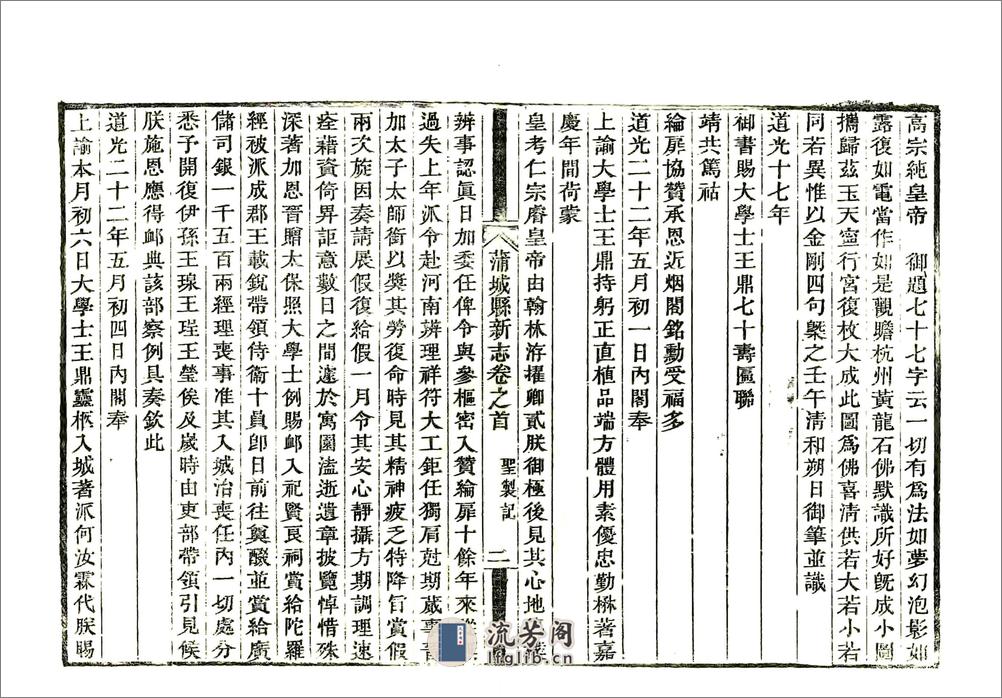 高宗純皇帝　御題七十七字云一切有爲法如夢幻泡影如
露復如電當作如是觀瞻杭州黃龍石佛默識所好旣成小圖
攜歸茲玉天寧行宮復枚大成此圖爲佛喜清供若大若小若
同若異惟以金剛四句槩之壬午清和朔日御筆並識
道光十七年
御書賜大學士王鼎七十壽匾聯
靖共篤祜
綸扉協贊承恩近烟閣銘勳受福多
道光二十二年五月初一日內閣奉
上諭大學士王鼎持躬正直植品端方體用素優忠勤楙著嘉
慶年間荷蒙
皇考仁宗睿皇帝由翰林洊擢卿貳朕御極後見其心地
蒲城縣新志卷之首　聖製記　二
辨事認眞日加委任俾令與參樞密入贊綸扉十餘年來
過失上年派令赴河南辨理祥符大工鉅任獨肩尅期蕆事
加太子太師銜以獎其勞復命時見其精神疲乏特降旨賞假
兩次旋因奏請展假復給假一月令其安心靜攝方期調理速
痊藉資倚畀詎意數日之間遽於寓園溘逝遺章披覽悼惜殊
深著加恩晉贈太保照大學士例賜卹入祀賢良祠賞給陀羅
經被派成郡王載銳帶領侍衞十員卽日前往奠醊並賞給廣
儲司銀一千五百兩經理喪事准其入城治喪任內一切處分
悉予開復伊孫王瑔王瑆王瑩俟及歲時由吏部帶領引見候
朕施恩應得卹典該部察例具奏欽此
道光二十二年五月初四日內閣奉
上諭本月初六日大學士王鼎靈柩入城著派何汝霖代朕賜
流芳阁
lfglib.cn